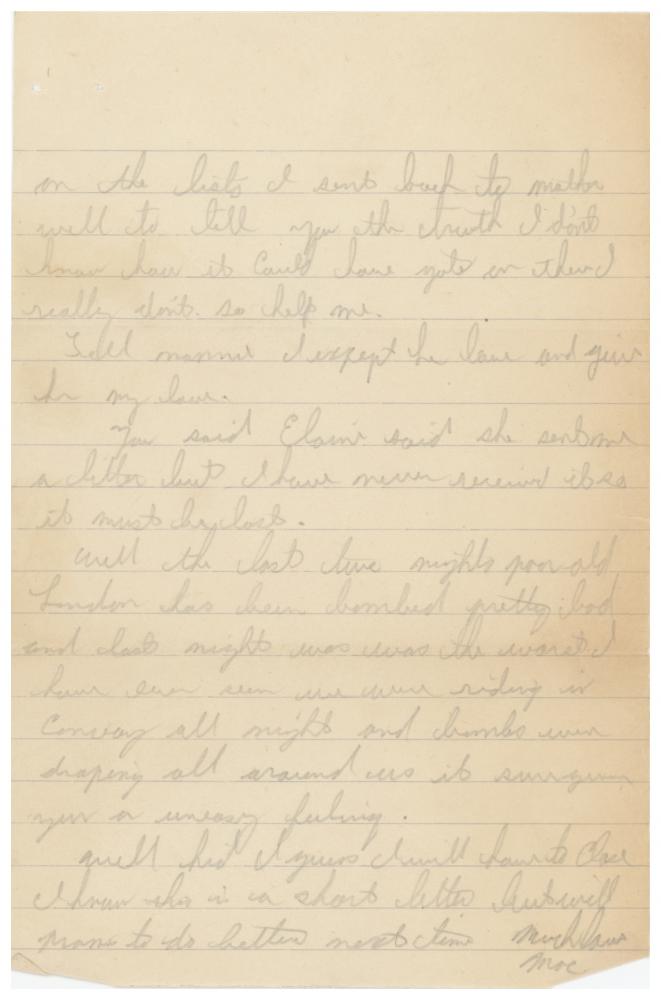 on the lists I sent back to mother
well to tell you the truth I don't
know how it could have gote on then I
really don't. so help me.
Tell mammie I expept he love and give
he my love.
You said Elaine said she sent me
a letter but I have never received it so
it must be lost.
Well the last two nights poor old
London has been bombed pretty bad
and last night was was the worst I
have ever seen we were riding in
Convoy all night and bombs were
droping all around us it sure
you a uneasy feeling.
Well kid I guess I will have to Close
I know this is a short letter but will
to do better next time Much love
Mac